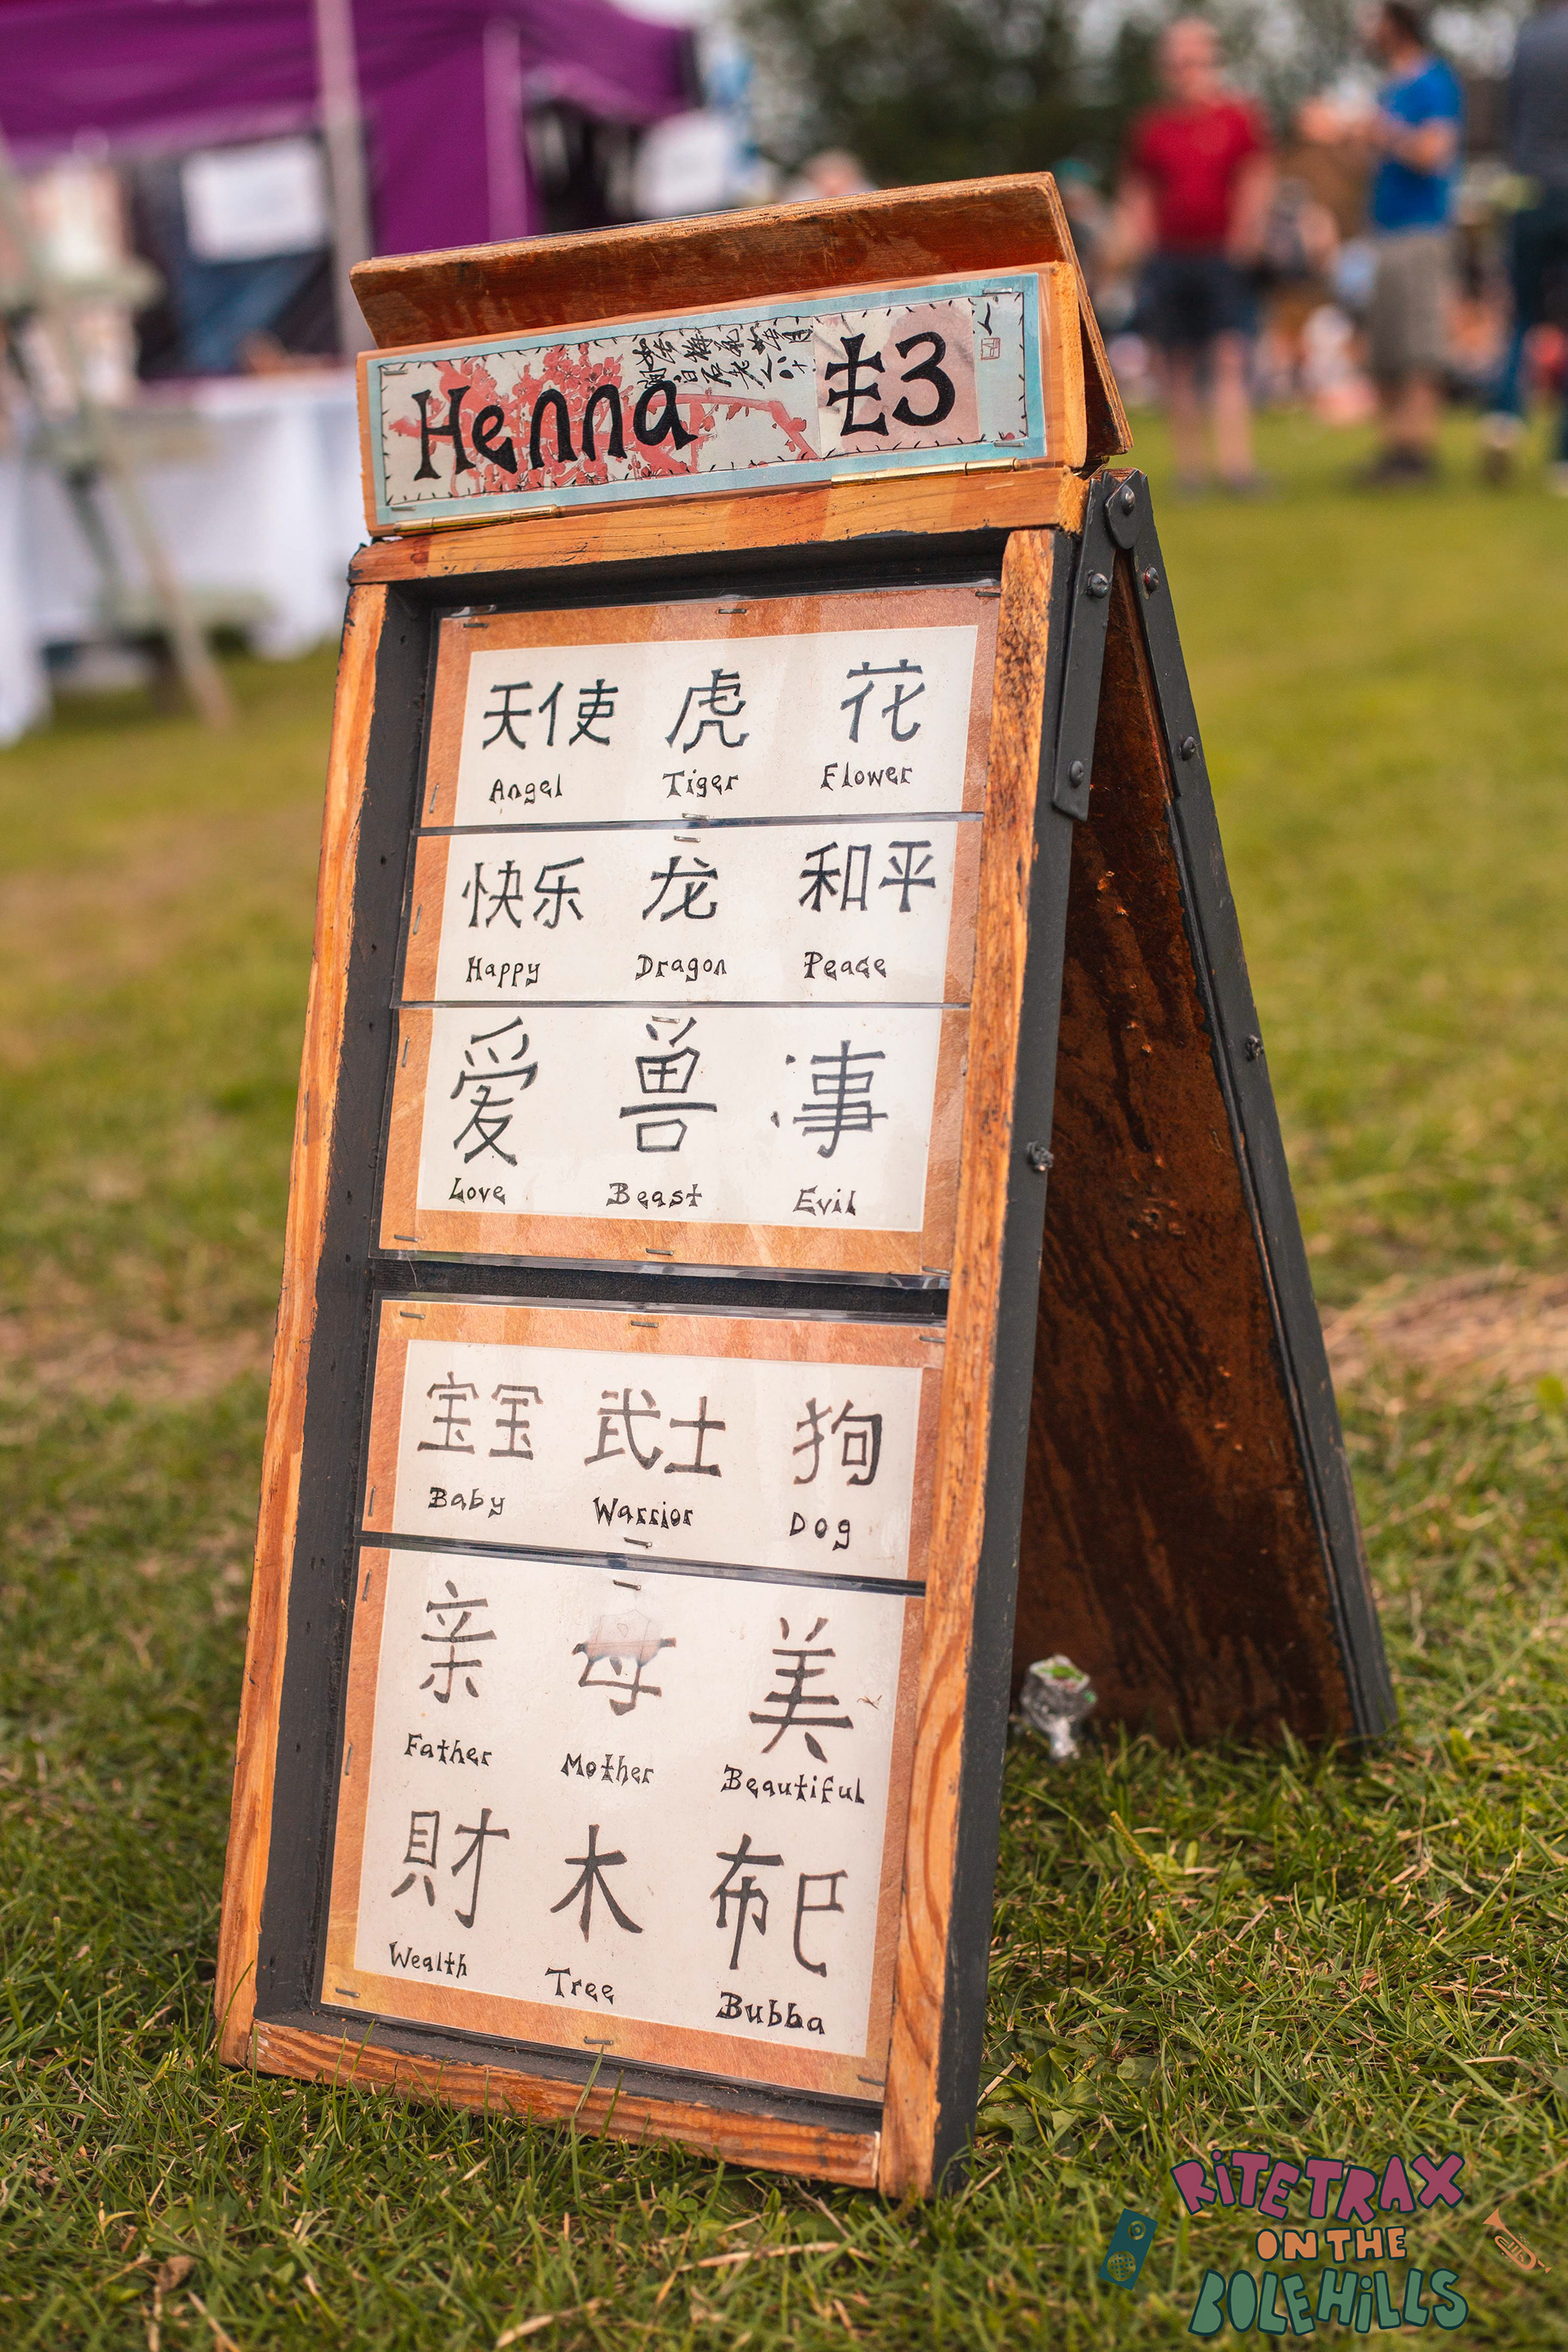 Henna £3
天使 虎 花
Angel Tiger Flower
快乐 龙 和平
Happy Dragon Peace
爱 兽 事
Love Beast Evil
宝宝 武士 狗
Baby Warrior Dog
亲 母 美
Father Mother Beautiful
財 木 布巴
Wealth Tree Bubba
RITETRAX
ON THE
BOLEHILLS